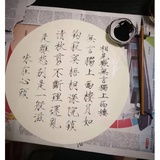 相見歡無言獨上西樓
無言獨上西樓月如
鈎寂寞梧桐深院鎖
清秋剪不斷理還亂
是離愁別是一般滋
味在心頭